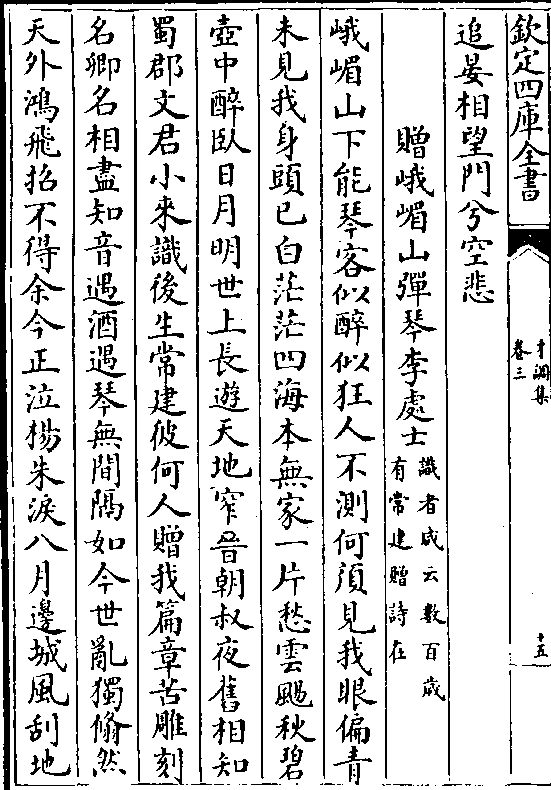 欽定四庫全書
才調集
卷三
十五
追晏相望門兮空悲
贈峨嵋山彈琴李處士
識者咸云數百歲
有常建贈詩在
峨嵋山下能琴客似醉似狂人不測何須見我眼偏青
未見我身頭已白茫茫四海本無家一片愁雲颺秋碧
壺中醉臥日月明世上長遊天地窄晉朝叔夜舊相知
蜀郡文君小來識後生常建彼何人贈我篇章苦雕刻
名卿名相盡知音遇酒遇琴無間隔如今世亂獨翛然
天外鴻飛招不得余今正泣楊朱淚八月邊城風刮地